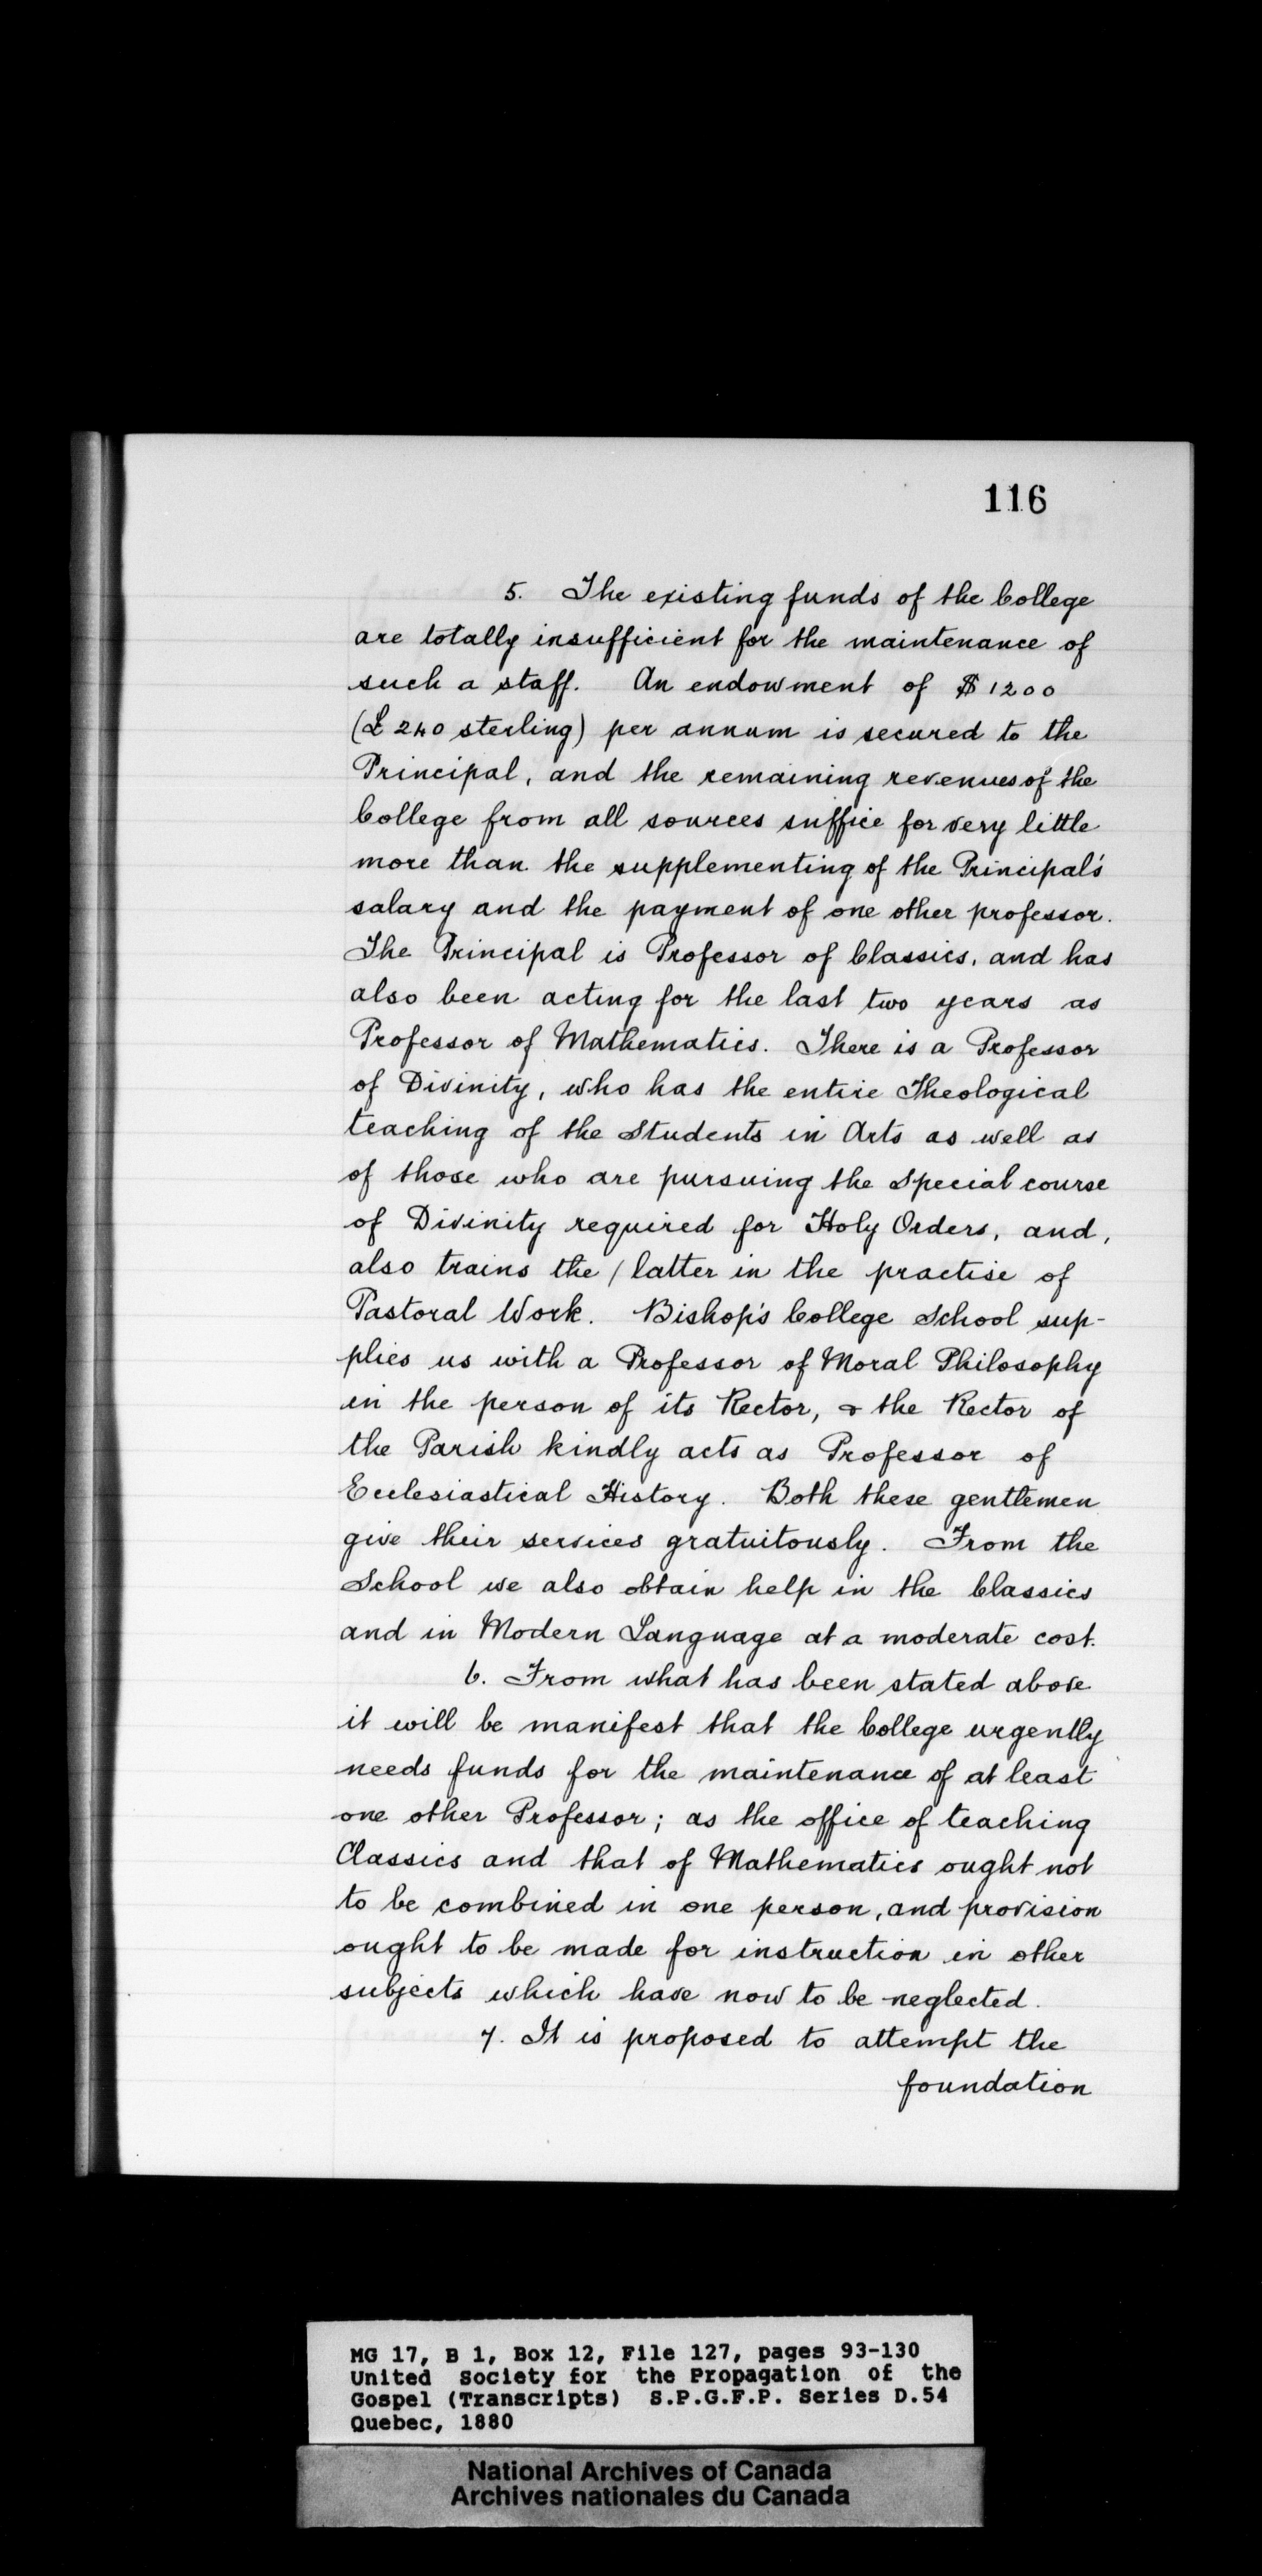 116
5. The existing funds of the College
are totally insufficient for the maintenance of
such a staff. An endowment of $1200
(£240 sterling) per annum is secured to the
Principal, and the remaining revenues of the
College from all sources suffice for very little
more than the supplementing of the Principal's
salary and the payment of one other professor.
The Principal is Professor of Classics, and has
also been acting for the last two years as
Professor of Mathematics. There is a Professor
of Divinity, who has the entire Theological
teaching of the Students in Arts as well as
of those who are pursuing the Special course
of Divinity required for Holy Orders, and,
also trains the / latter in the practise of
Pastoral Work. Bishop's College School sup-
plies us with a Professor of Moral Philosophy
in the person of its Rector, & the Rector of
the Parish kindly acts as Professor of
Ecclesiastical History. Both these gentlemen
give their services gratuitously. From the
School we also obtain help in the Classics
and in Modern Language at a moderate cost.
6. From what has been stated above
it will be manifest that the College urgently
needs funds for the maintenance of at least
one other Professor; as the office of teaching
Classics and that of Mathematics ought not
to be combined in one person, and provision
ought to be made for instruction in other
subjects which have now to be neglected.
7. It is proposed to attempt the
foundation
MG 17, B 1, Box 12, File 127, pages 93-130
United Society for the Propagation of the
Gospel (Transcripts) S.P.G.F.P. Series D.54
Quebec, 1880
National Archives of Canada
Archives nationales du Canada